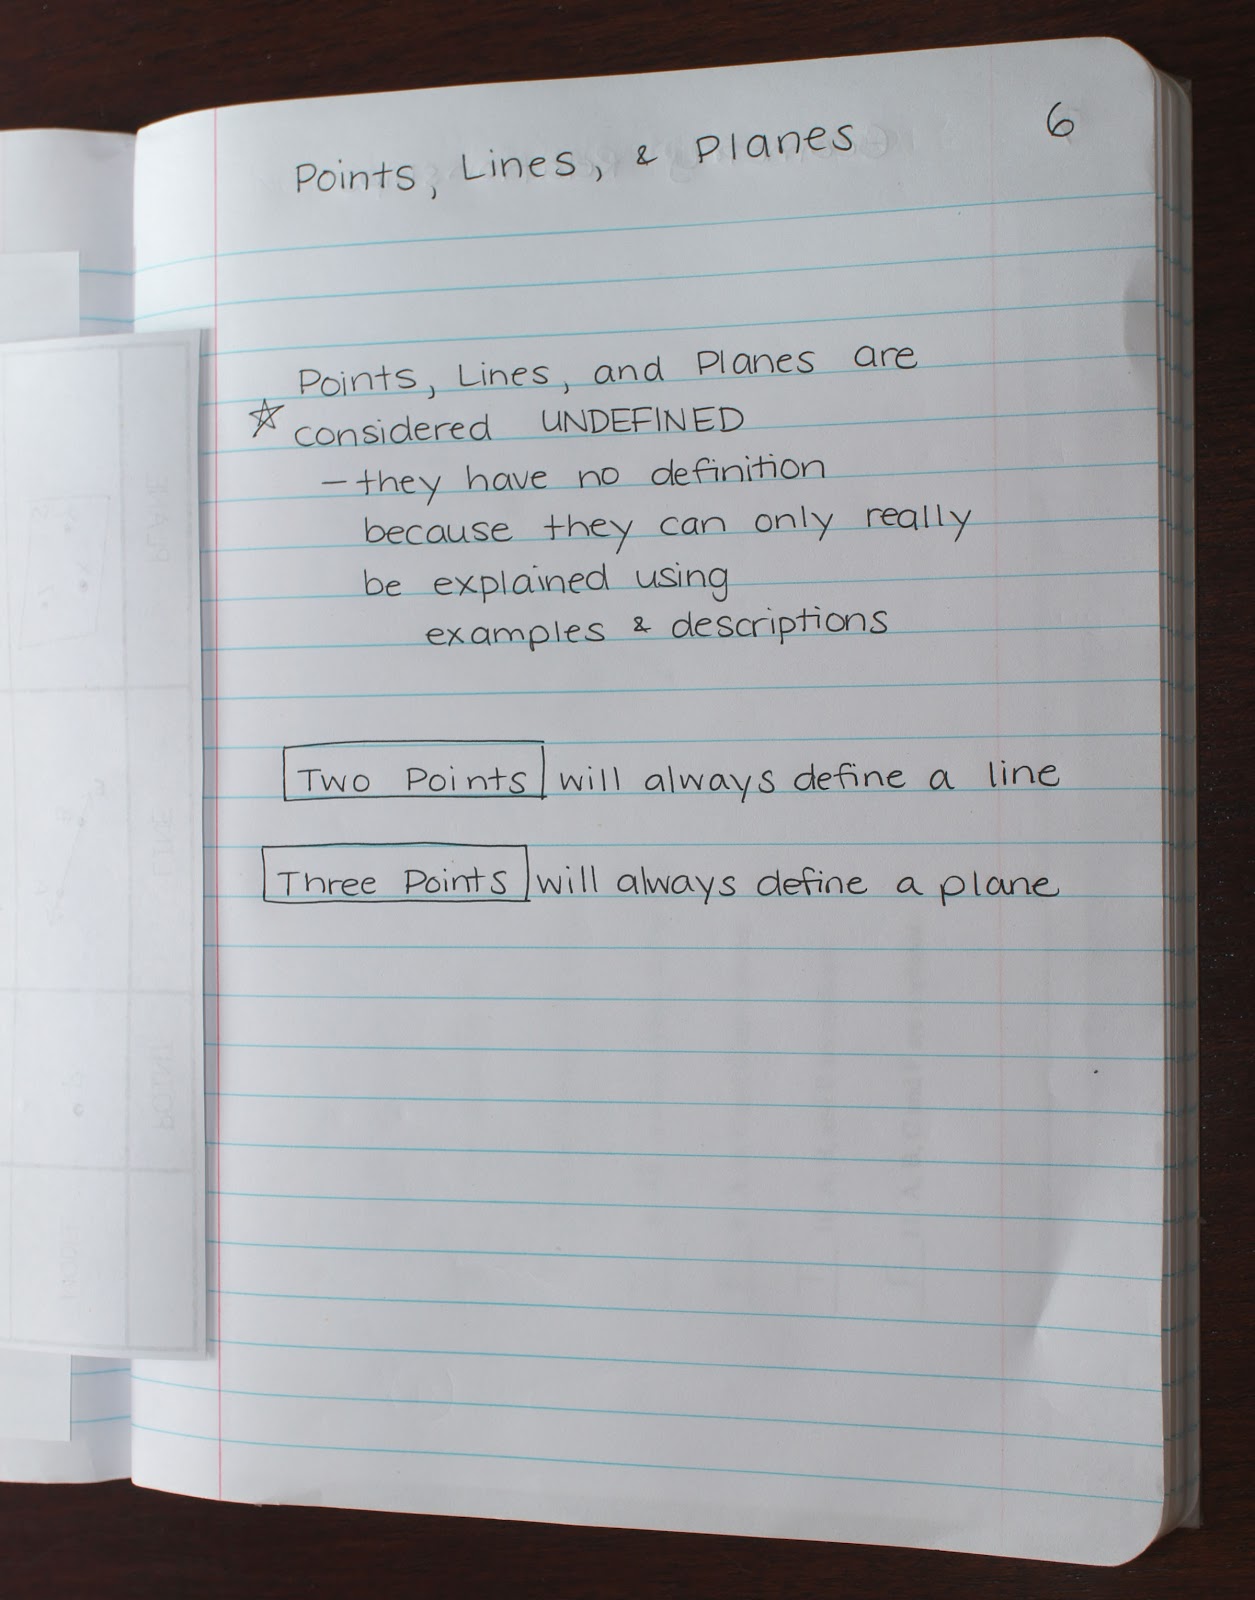 Points, Lines, & Planes
6
Points, Lines, and Planes are
☆ considered UNDEFINED
– they have no definition
because they can only really
be explained using
examples & descriptions
Two Points will always define a line
Three Points will always define a plane
PLANE
LINE
POINT
MODEL